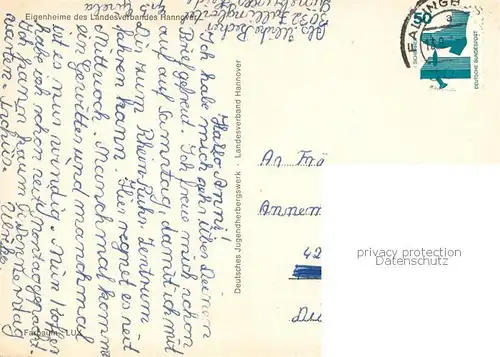 Eigenheime des Landesverbandes Hannover
Abs. Ulrike
3032 Fallingbostel
Hallo Anni!
Ich habe mich sehr über Deinen
Brief gefreut. Ich freue mich schon
auf Samstag, damit ich mit
Dir zum Rhein-Ruhr-Zentrum
fahren kann. Hier regnet es seit
Mittwoch. Manchmal kommt
ein Gewitter und manchmal
ist es nur windig. Mein Koffer
habe ich schon seit Montag gepackt.
Ich kann kaum bis Donnerstag
warten. Tschüs.
Ulrike
Farbaufn.: LUX
Deutsches Jugendherbergswerk · Landesverband Hannover
FALLINGB
50
DEUTSCHE BUNDESPOST
An Frä
Annem
42
privacy protection
Datenschutz